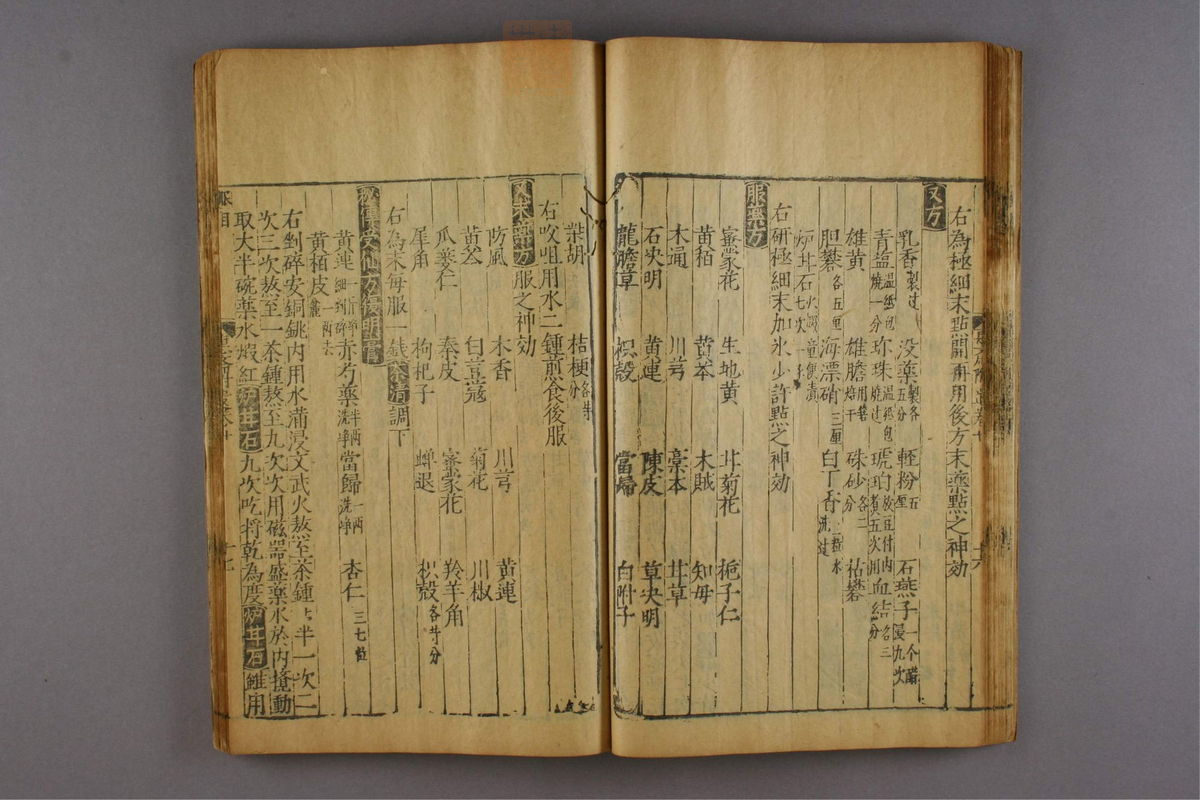 右為極細末點開再用後方末藥點之神効
又方
乳香製过 没藥製各五分 輕粉五厘 石燕子一个醋浸九次
青塩温紙包燒一分 珎珠温紙包燒过 琥珀放豆付内煮五次用 血結各三分
雄黄 雄膽用礬焙干 硃砂各二分 枯礬
胆礬各五厘 海漂硝三厘 白丁香二粒水洗过
炉甘石火煆七次童便漬
右研極細末加氷少許點之神効
服藥方
蜜蒙花 生地黄 甘菊花 梔子仁
黄栢 黄芩 木賊 知母
木通 川芎 藁本 甘草
石央明 黄連 陳皮 草央明
龍膽草 枳殼 當歸 白附子
柴胡 桔梗各半分
右㕮咀用水二鍾煎食後服
又末藥方服之神効
防風 木香 川芎 黄連
黄芩 白荳蔻 菊花 川椒
瓜蔞仁 秦皮 蜜蒙花 羚羊角
犀角 枸杞子 蟬退 枳殼各等分
右為末每服一錢茶清調下
秘傳受仙方後明膏
黄連 赤芍藥半兩洗净 當歸一兩洗净 杏仁三七粒
黄栢皮一兩去麄
右剉碎安銅銚内用水滿浸文武火熬至茶鍾 半一次二
次三次熬至一茶鍾熬至九次次用磁器盛藥水於内攪動
取大半碗藥水煆紅炉甘石九次吃将乾為度炉甘石雖用